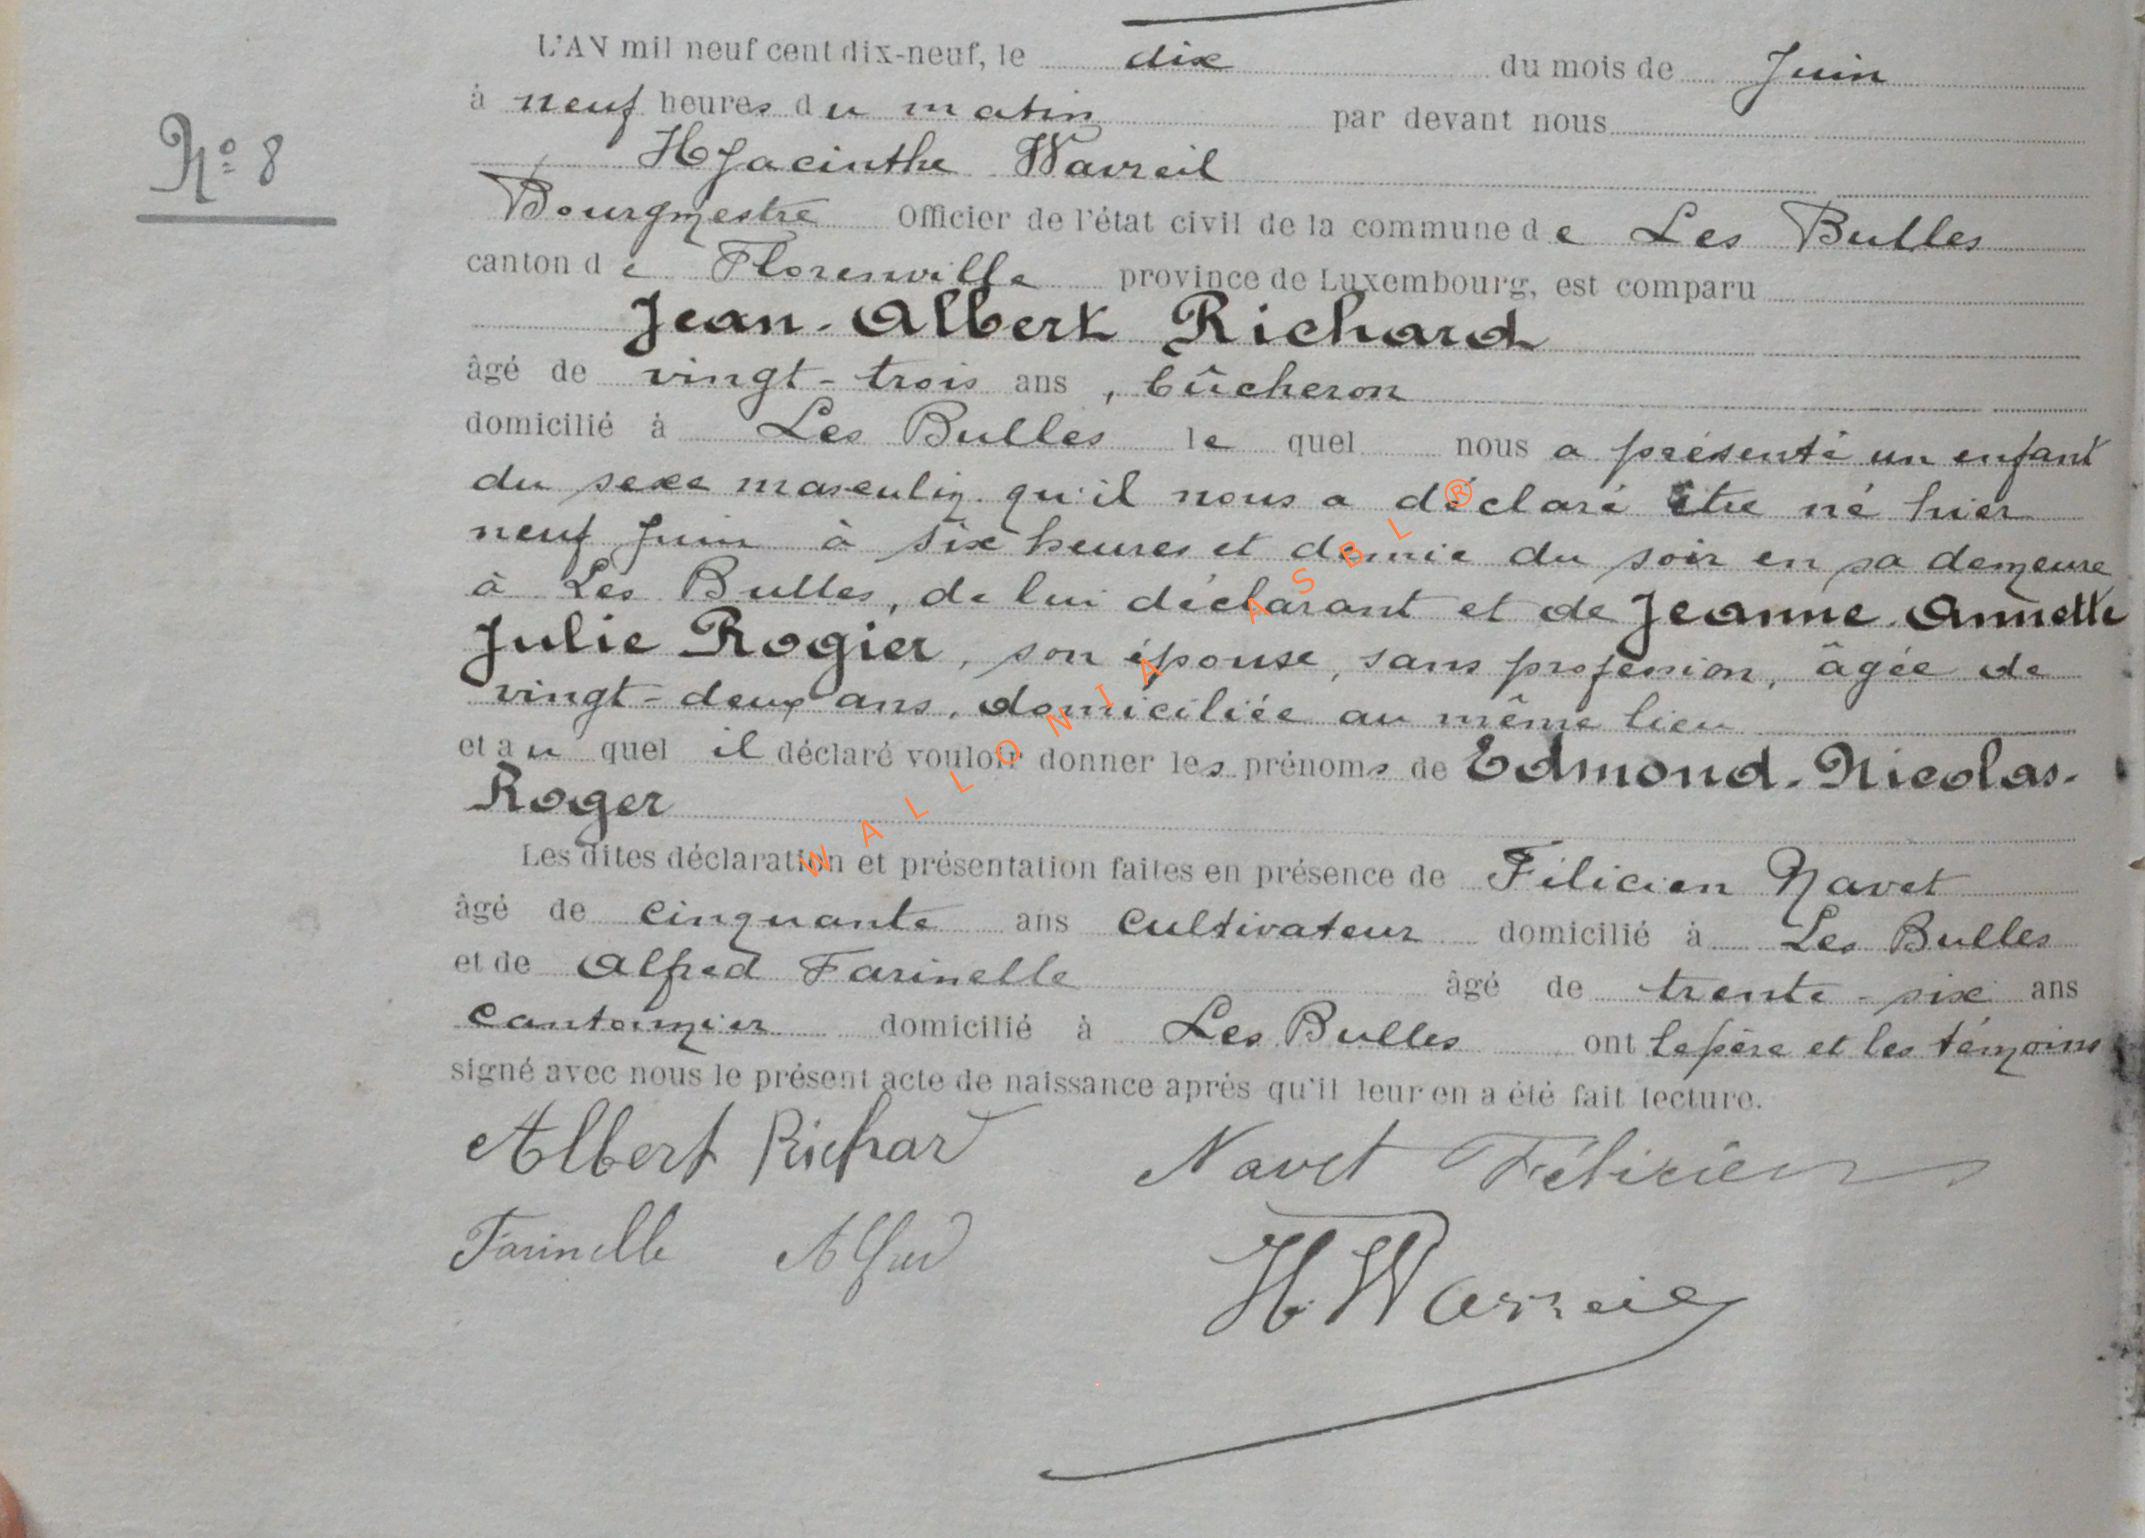 N° 8
L'AN mil neuf cent dix-neuf, le dix du mois de Juin
à neuf heures du matin par devant nous
Hyacinthe Wavreil
Bourgmestre Officier de l'état civil de la commune de Les Bulles
canton de Florenville province de Luxembourg, est comparu
Jean-Albert Richard
âgé de vingt-trois ans, bûcheron
domicilié à Les Bulles le quel nous a présenté un enfant
du sexe masculin qu'il nous a déclaré être né hier
neuf Juin à six heures et demie du soir en sa demeure
à Les Bulles, de lui déclarant et de Jeanne-Annette
Julie Rogier, son épouse, sans profession, âgée de
vingt-deux ans, domiciliée au même lieu
et au quel il déclaré vouloir donner les prénoms de Edmond-Nicolas-
Roger
Les dites déclaration et présentation faites en présence de Félicien Navet
âgé de cinquante ans cultivateur domicilié à Les Bulles
et de Alfred Farinelle âgé de trente-six ans
cantonnier domicilié à Les Bulles ont le père et les témoins
signé avec nous le présent acte de naissance après qu'il leur en a été fait lecture.
Albert Richard Navet Félicien
Farinelle Alfred H. Wavreil
WALLONIA ASBL ®